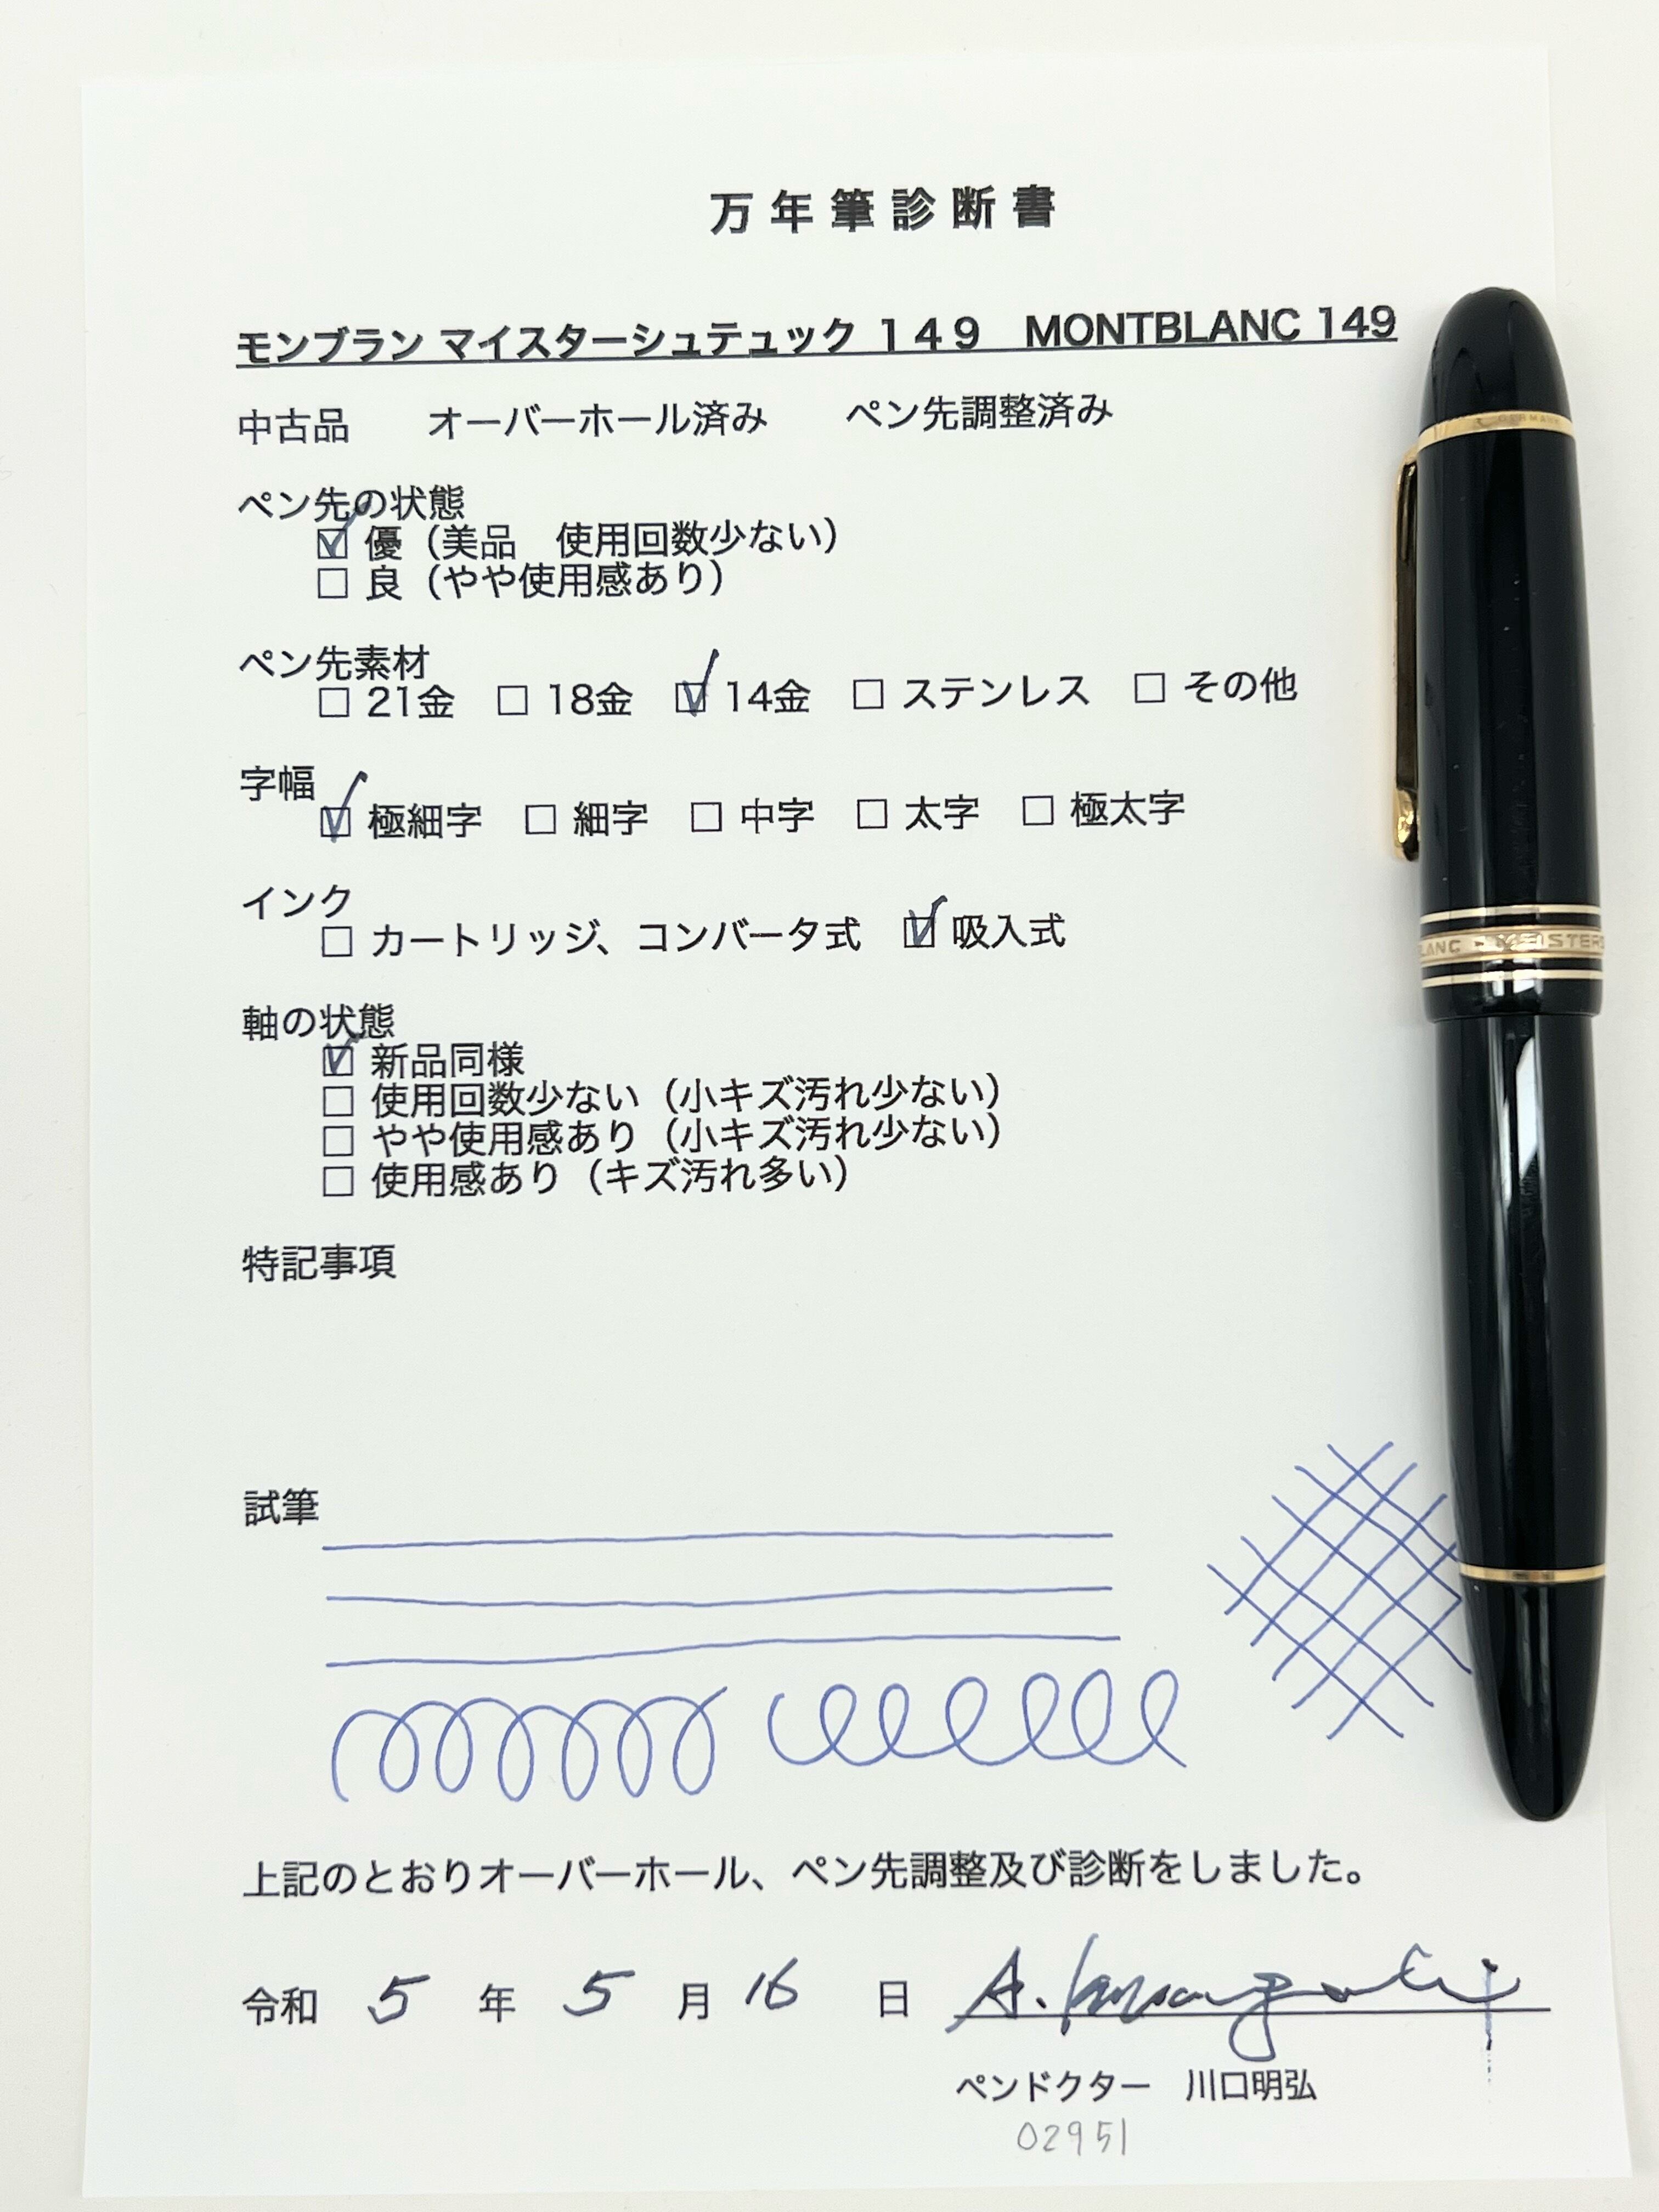 万年筆診断書
モンブラン マイスターシュテュック １４９　MONTBLANC 149
中古品　　オーバーホール済み　　ペン先調整済み
ペン先の状態
☑ 優（美品　使用回数少ない）
□ 良（やや使用感あり）
ペン先素材
□ 21金　□ 18金　☑ 14金　□ ステンレス　□ その他
字幅
☑ 極細字　□ 細字　□ 中字　□ 太字　□ 極太字
インク
□ カートリッジ、コンバータ式　☑ 吸入式
軸の状態
☑ 新品同様
□ 使用回数少ない（小キズ汚れ少ない）
□ やや使用感あり（小キズ汚れ少ない）
□ 使用感あり（キズ汚れ多い）
特記事項
試筆
上記のとおりオーバーホール、ペン先調整及び診断をしました。
令和 5 年 5 月 16 日 A. Kawaguchi
ペンドクター　川口明弘
02951
GERMANY
LANC - MEISTERS